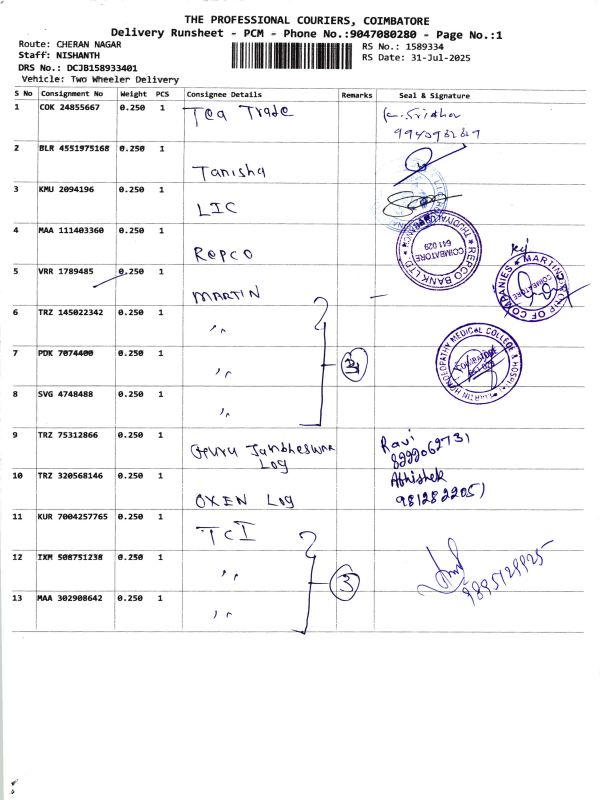 THE PROFESSIONAL COURIERS, COIMBATORE
Delivery Runsheet - PCM - Phone No.:9047080280 - Page No.:1
Route: CHERAN NAGAR
RS No.: 1589334
Staff: NISHANTH
RS Date: 31-Jul-2025
DRS No.: DCJB158933401
Vehicle: Two Wheeler Delivery
S No Consignment No Weight PCS Consignee Details Remarks Seal & Signature
1 COK 24855667 0.250 1 Tea Trade
2 BLR 4551975168 0.250 1 Tanisha
3 KMU 2094196 0.250 1 LIC
4 MAA 111403360 0.250 1 Repco
REPCO BANK LTD. COIMBATORE 641 029
5 VRR 1789485 0.250 1 MARTIN
MARTIN GROUP OF COMPANIES COIMBATORE
6 TRZ 145022342 0.250 1 ,,
7 PDK 7074400 0.250 1 ,,
MARTIN HOMOEOPATHY MEDICAL COLLEGE & HOSPITAL COIMBATORE
8 SVG 4748488 0.250 1 ,,
9 TRZ 75312866 0.250 1 Guru Jambheswar Log Ravi 8222062731
10 TRZ 320568146 0.250 1 OXEN Log Abhishek 9812822051
11 KUR 7004257765 0.250 1 TCI
12 IXM 508751238 0.250 1 ,, 3
13 MAA 302908642 0.250 1 ,,